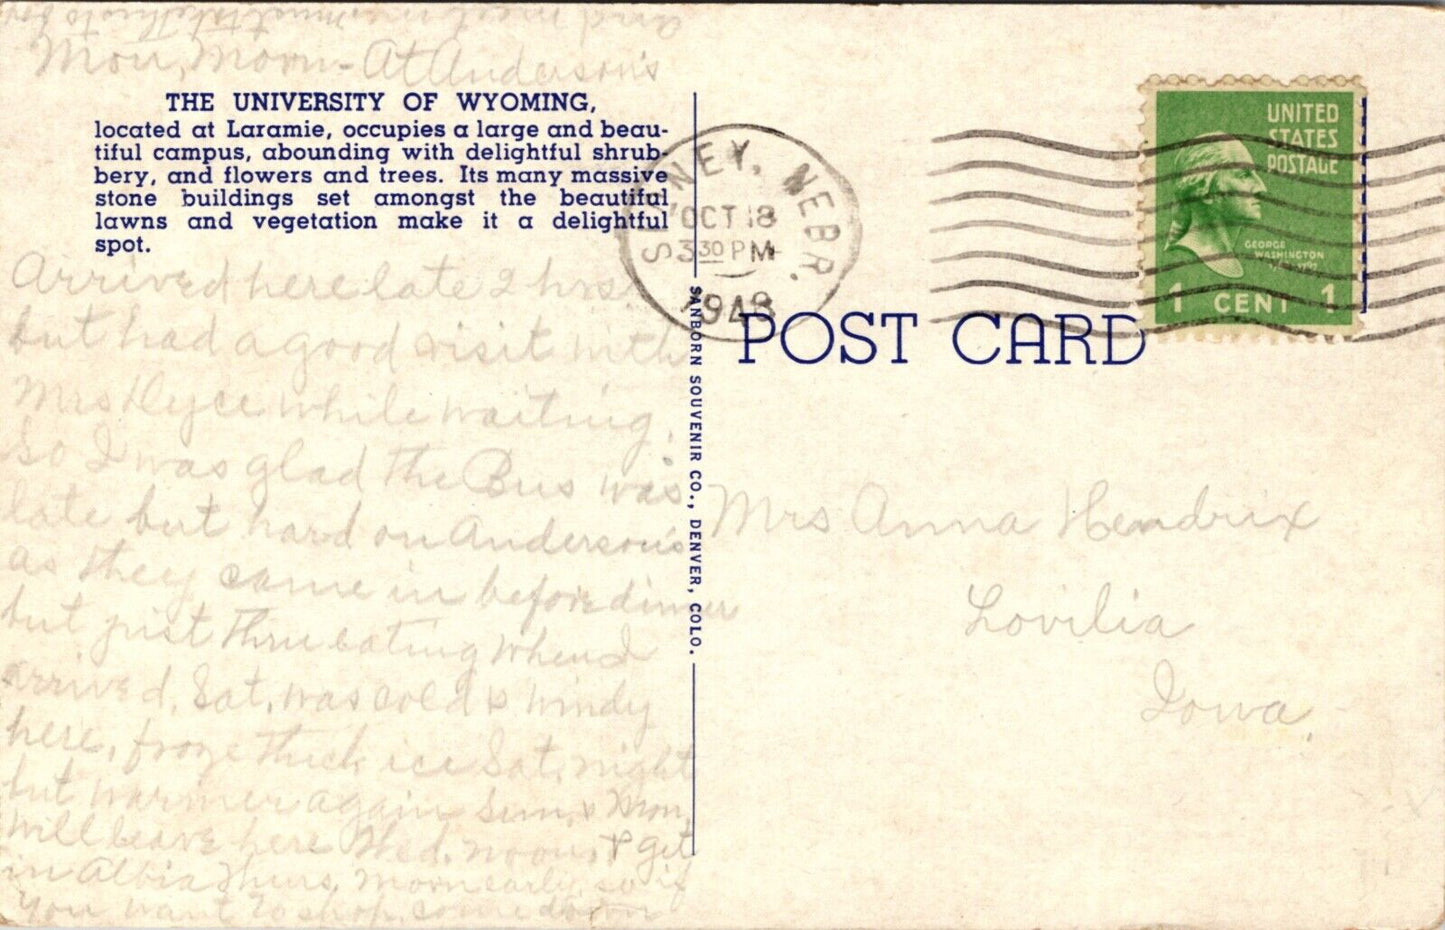 Mon, Morn - At Anderson's
THE UNIVERSITY OF WYOMING,
located at Laramie, occupies a large and beau-
tiful campus, abounding with delightful shrub-
bery, and flowers and trees. Its many massive
stone buildings set amongst the beautiful
lawns and vegetation make it a delightful
spot.
Arrived here late 2 hrs.
but had a good visit with
Mrs Dyce while waiting.
So I was glad the Bus was
late but hard on Anderson's
as they came in before dinner
but just thru eating when I
arrived. Sat. was cold & windy
here, froze thick ice Sat. night
but warmer again Sun. & Mon.
Will leave here Wed. noon, & get
in Albia Thurs. Morn early, so if
you want to shop, come down
and meet me
SANBORN SOUVENIR CO., DENVER, COLO.
SIDNEY, NEBR.
OCT 18
3 30 PM
1948
UNITED
STATES
POSTAGE
GEORGE
WASHINGTON
1 CENT 1
POST CARD
Mrs Anna Hendrix
Lovilia
Iowa.